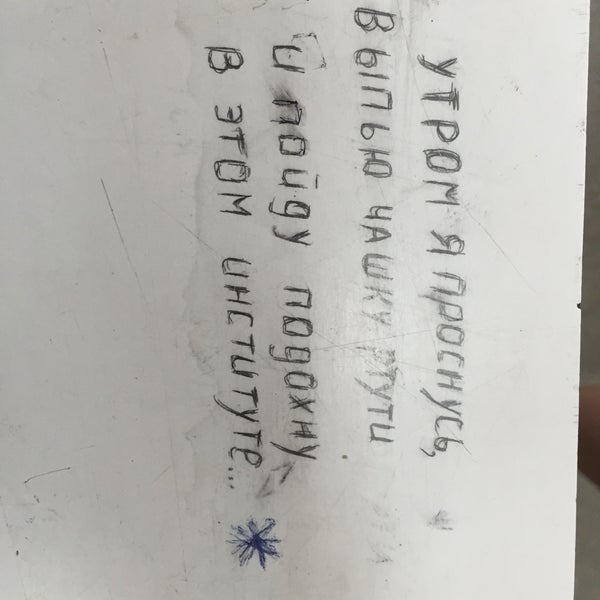 УТРОМ Я ПРОСНУСЬ,
ВЫПЬЮ ЧАШКУ РТУТИ
И ПОЙДУ ПОДОХНУ
В ЭТОМ ИНСТИТУТЕ...